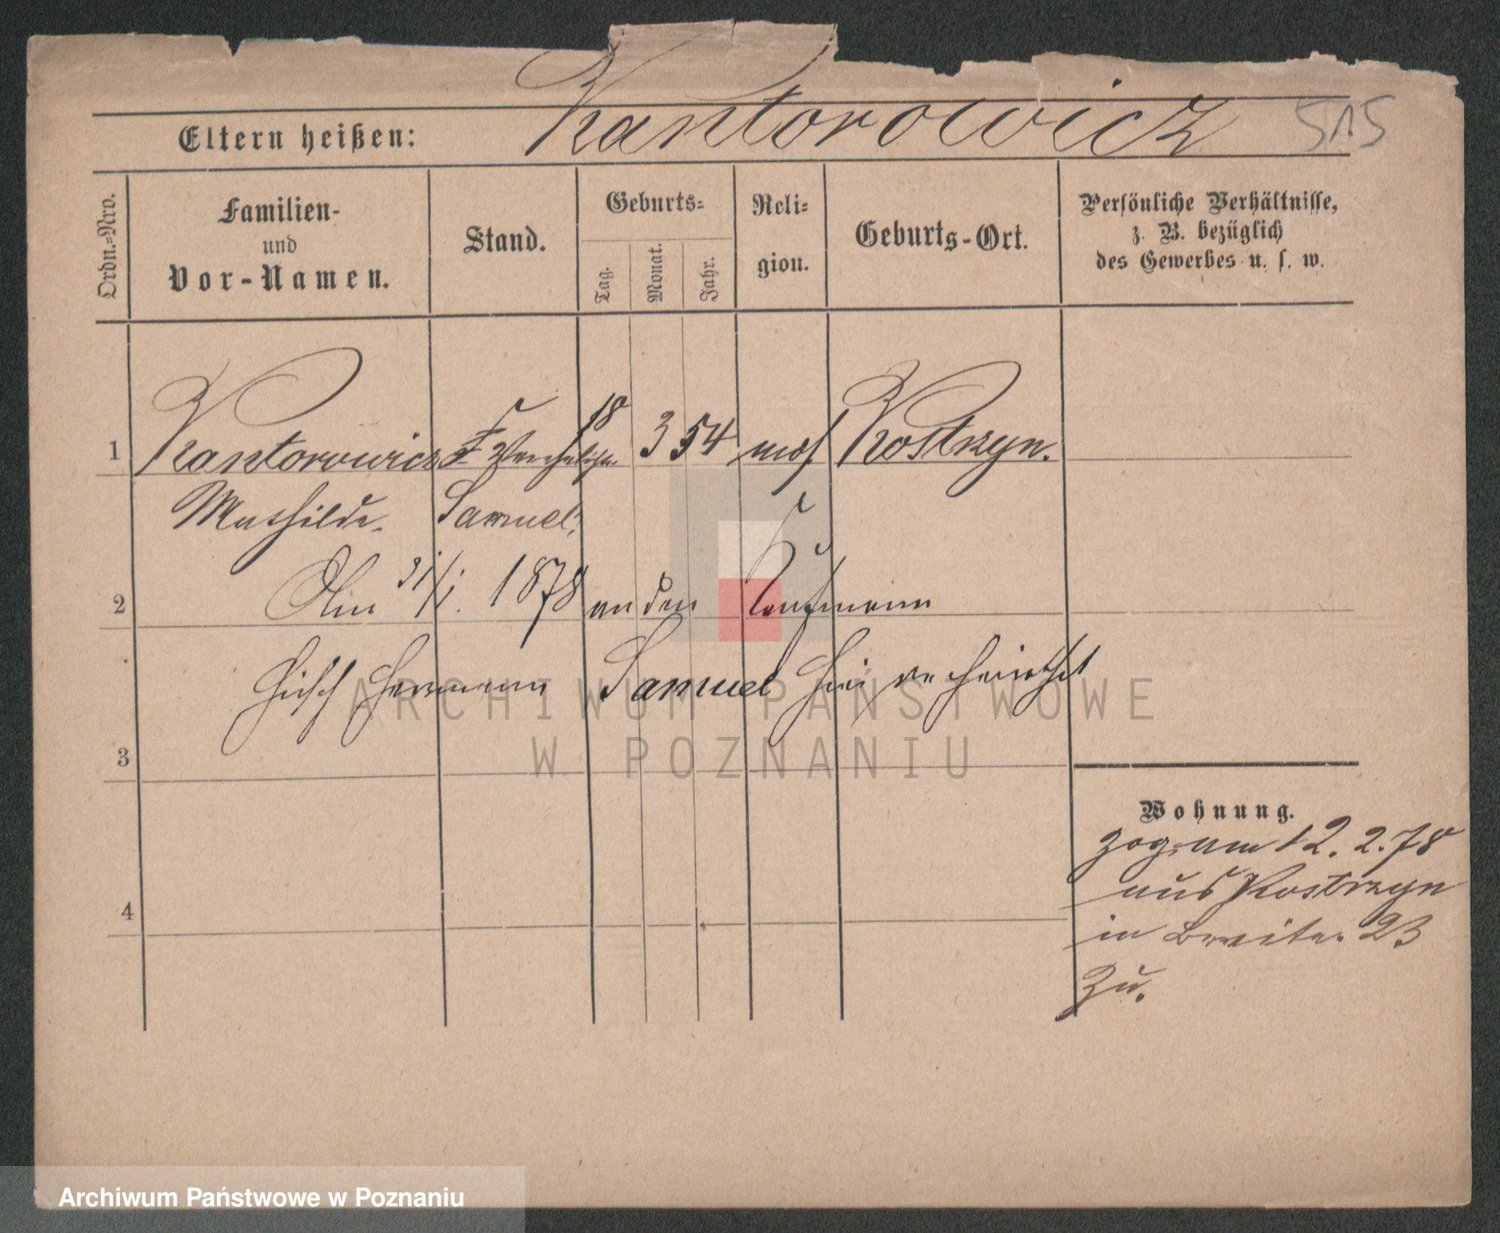 Kantorowicz 515
Eltern heißen:
Ordn.-Nro.
Familien-
und
Vor-Namen.
Stand.
Geburts-
Tag. Monat. Jahr.
Reli-
gion.
Geburts-Ort.
Persönliche Verhältnisse,
z. B. bezüglich
des Gewerbes u. s. w.
1 Kantorowicz 18 3 54 mos Kostrzyn.
Mathilde. Samuel.
2 Am 31/1. 1878 an den Kaufmann
Hirsch Hermann Samuel hier verheirathet
3
4
Wohnung.
zog am 12.2.78
aus Kostrzyn
in Breite. 23
zu.
ARCHIWUM PAŃSTWOWE
W POZNANIU
Archiwum Państwowe w Poznaniu